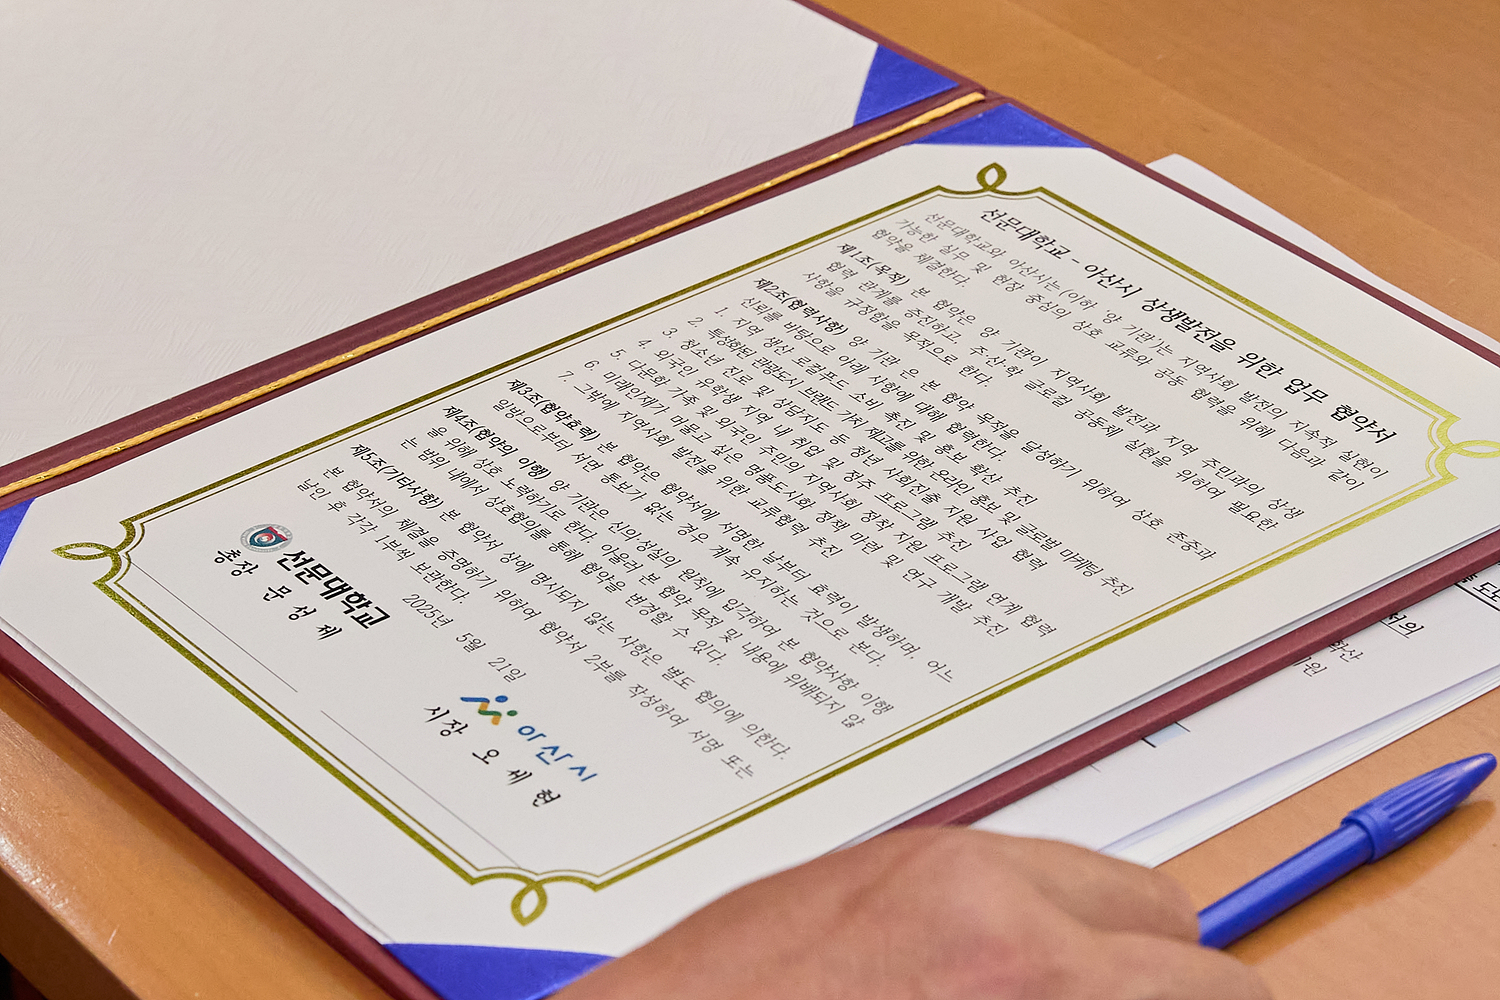 선문대학교 - 아산시 상생발전을 위한 업무 협약서
선문대학교와 아산시는(이하 '양 기관')는 지역사회 발전의 지속적 실현이
가능한 실무 및 현장 중심의 상호 교류와 공동 협력을 위해 다음과 같이
협약을 체결한다.
제1조(목적) 본 협약은 양 기관이 지역사회 발전과 지역 주민과의 상생
협력 관계를 증진하고, 주·산·학 글로컬 공동체 실현을 위하여 필요한
사항을 규정함을 목적으로 한다.
제2조(협력사항) 양 기관 은 본 협약 목적을 달성하기 위하여 상호 존중과
신뢰를 바탕으로 아래 사항에 대해 협력한다.
1. 지역 생산 로컬푸드 소비 촉진 및 홍보 확산 추진
2. 특성화된 관광도시 브랜드 가치 제고를 위한 온라인 홍보 및 글로벌 마케팅 추진
3. 청소년 진로 및 상담지도 등 청년 사회진출 지원 사업 협력
4. 외국인 유학생 지역 내 취업 및 정주 프로그램 추진
5. 다문화 가족 및 외국인 주민의 지역사회 정착 지원 프로그램 연계 협력
6. 미래인재가 머물고 싶은 명품도시화 정책 마련 및 연구 개발 추진
7. 그밖에 지역사회 발전을 위한 교류협력 추진
제3조(협약효력) 본 협약은 협약서에 서명한 날부터 효력이 발생하며, 어느
일방으로부터 서면 통보가 없는 경우 계속 유지하는 것으로 본다.
제4조(협약의 이행) 양 기관은 신의·성실의 원칙에 입각하여 본 협약사항 이행
을 위해 상호 노력하기로 한다. 아울러 본 협약 목적 및 내용에 위배되지 않
는 범위 내에서 상호협의를 통해 협약을 변경할 수 있다.
제5조(기타사항) 본 협약서 상에 명시되지 않는 사항은 별도 협의에 의한다.
본 협약서의 체결을 증명하기 위하여 협약서 2부를 작성하여 서명 또는
날인 후 각각 1부씩 보관한다.
2025년 5월 21일
선문대학교
총장 문 성 제
아산시
시장 오 세 현
확산